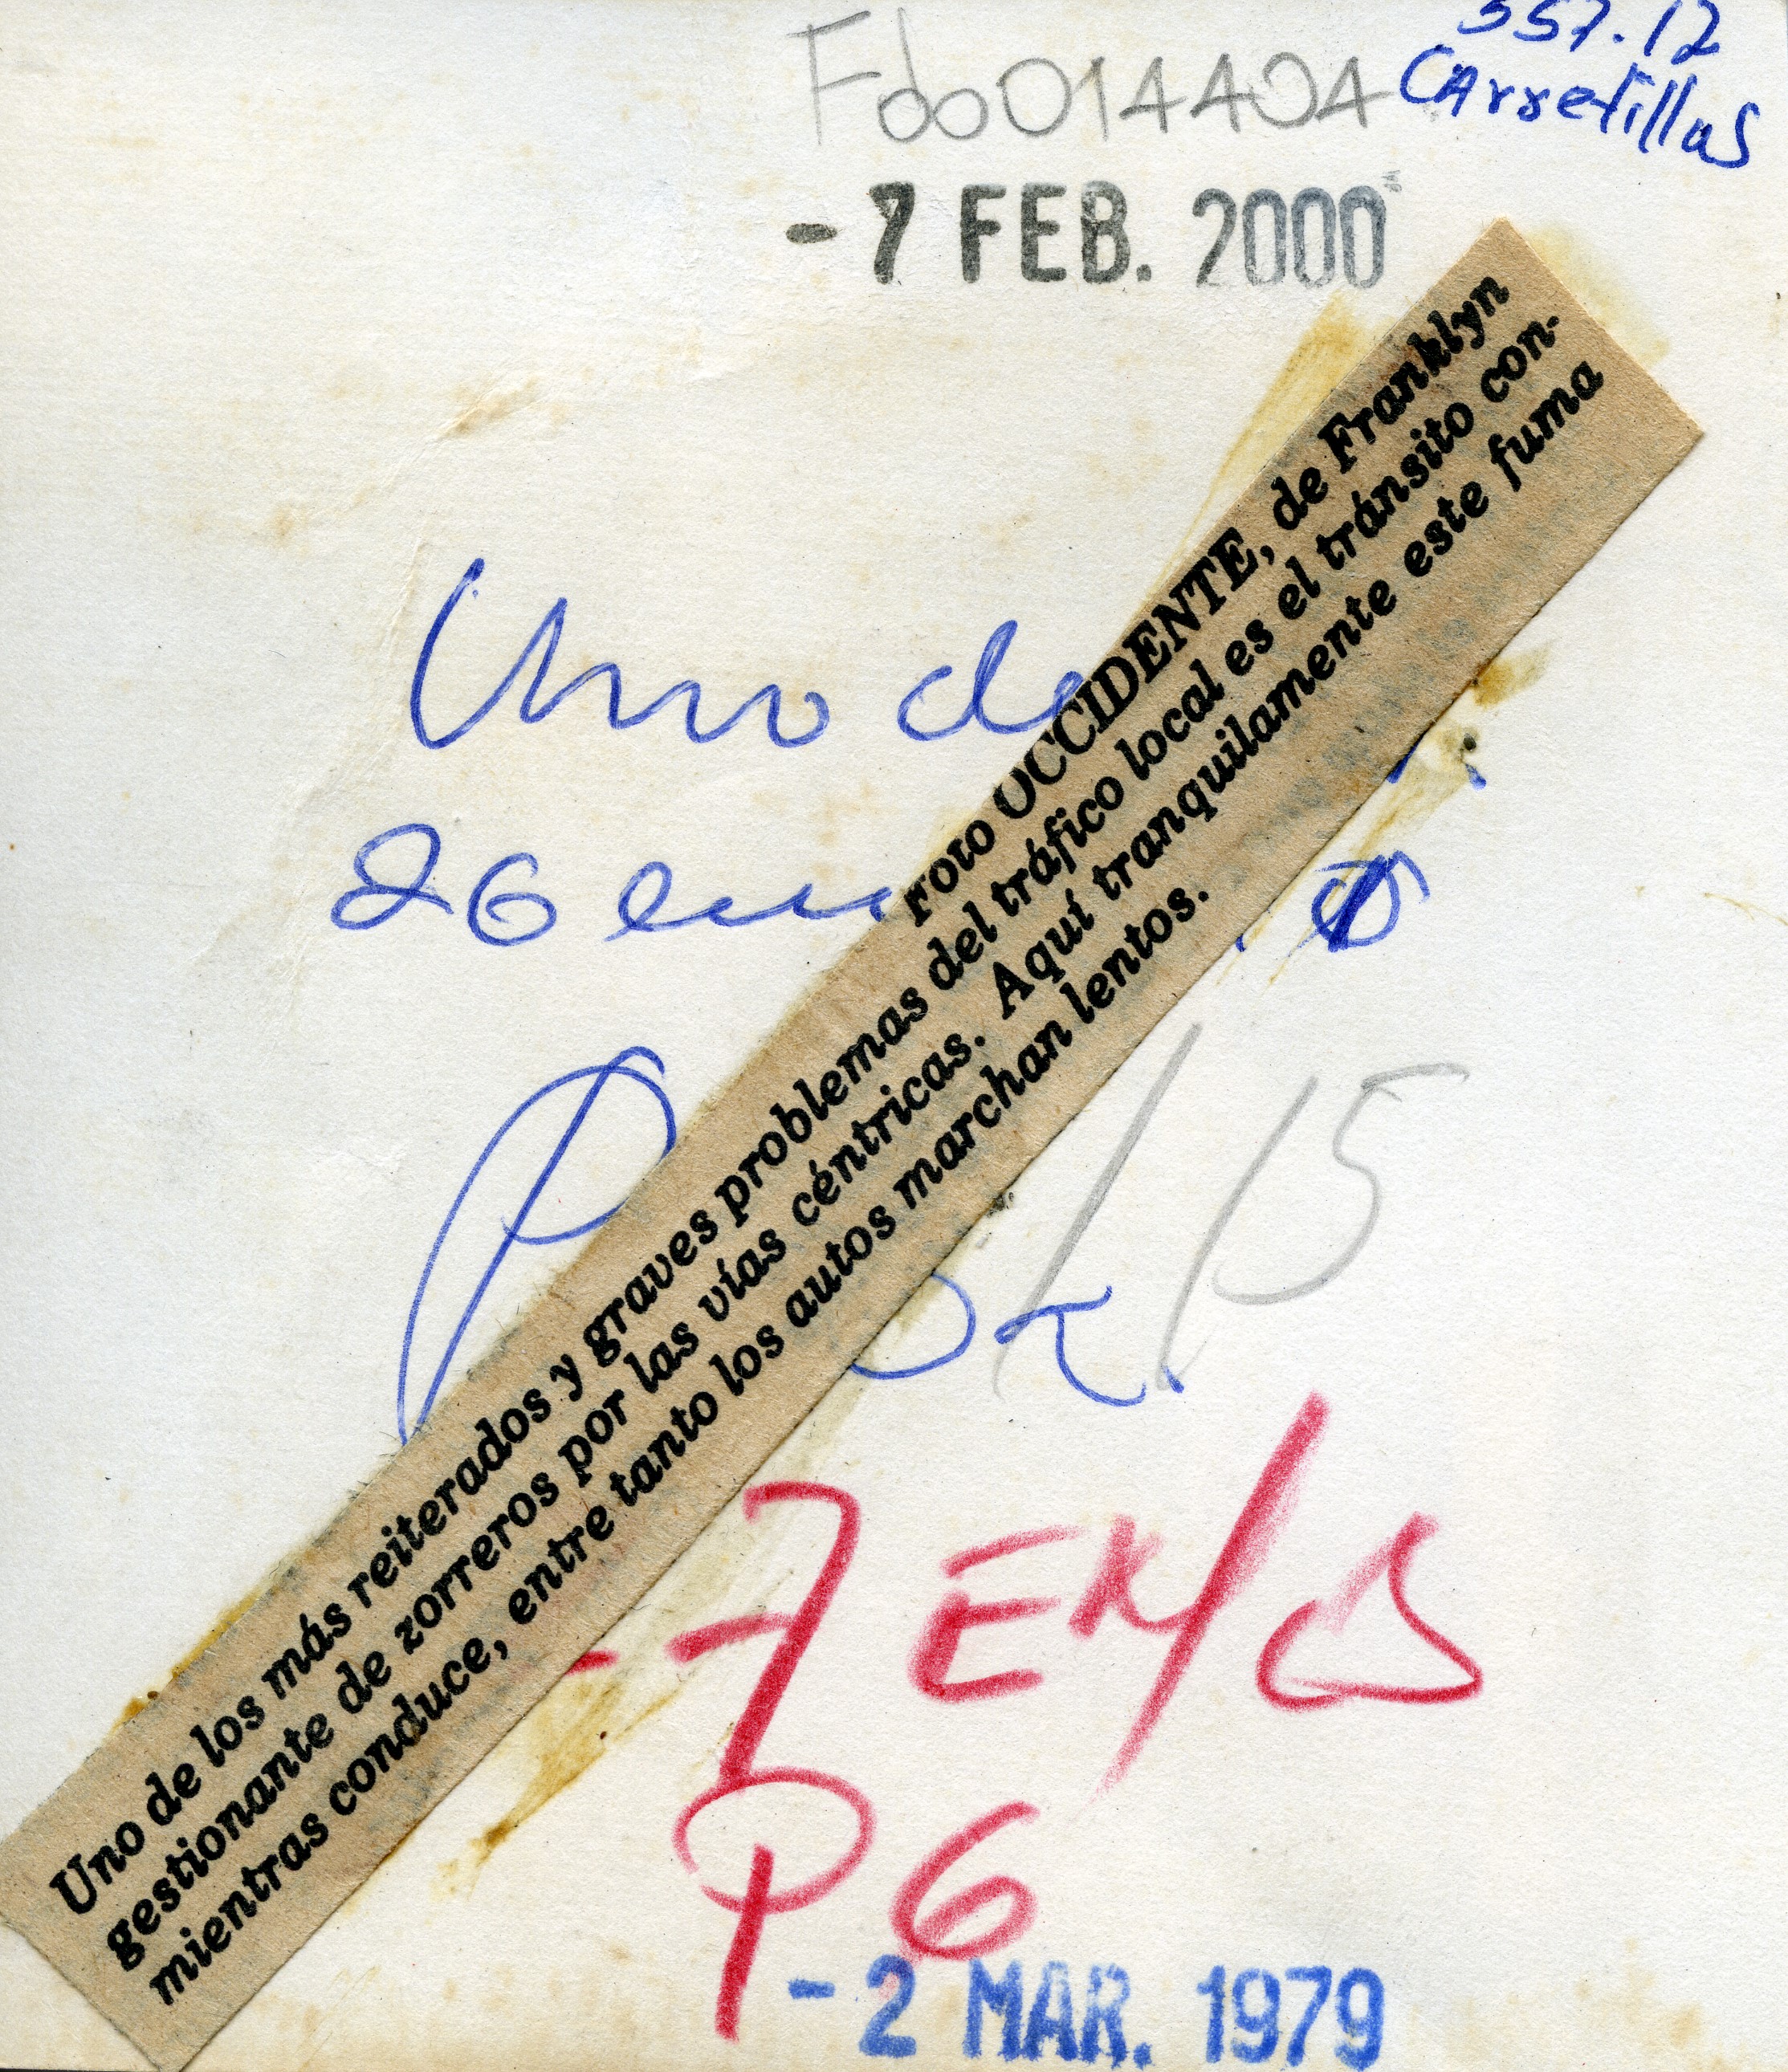 357.12
Carretillas
Fdo014404
-7 FEB. 2000
Foto OCCIDENTE, de Franklyn
Uno de los más reiterados y graves problemas del tráfico local es el tránsito con-
gestionante de zorreros por las vías céntricas. Aquí tranquilamente este fuma
mientras conduce, entre tanto los autos marchan lentos.
Uno de
26 em
15
P6
-2 MAR. 1979